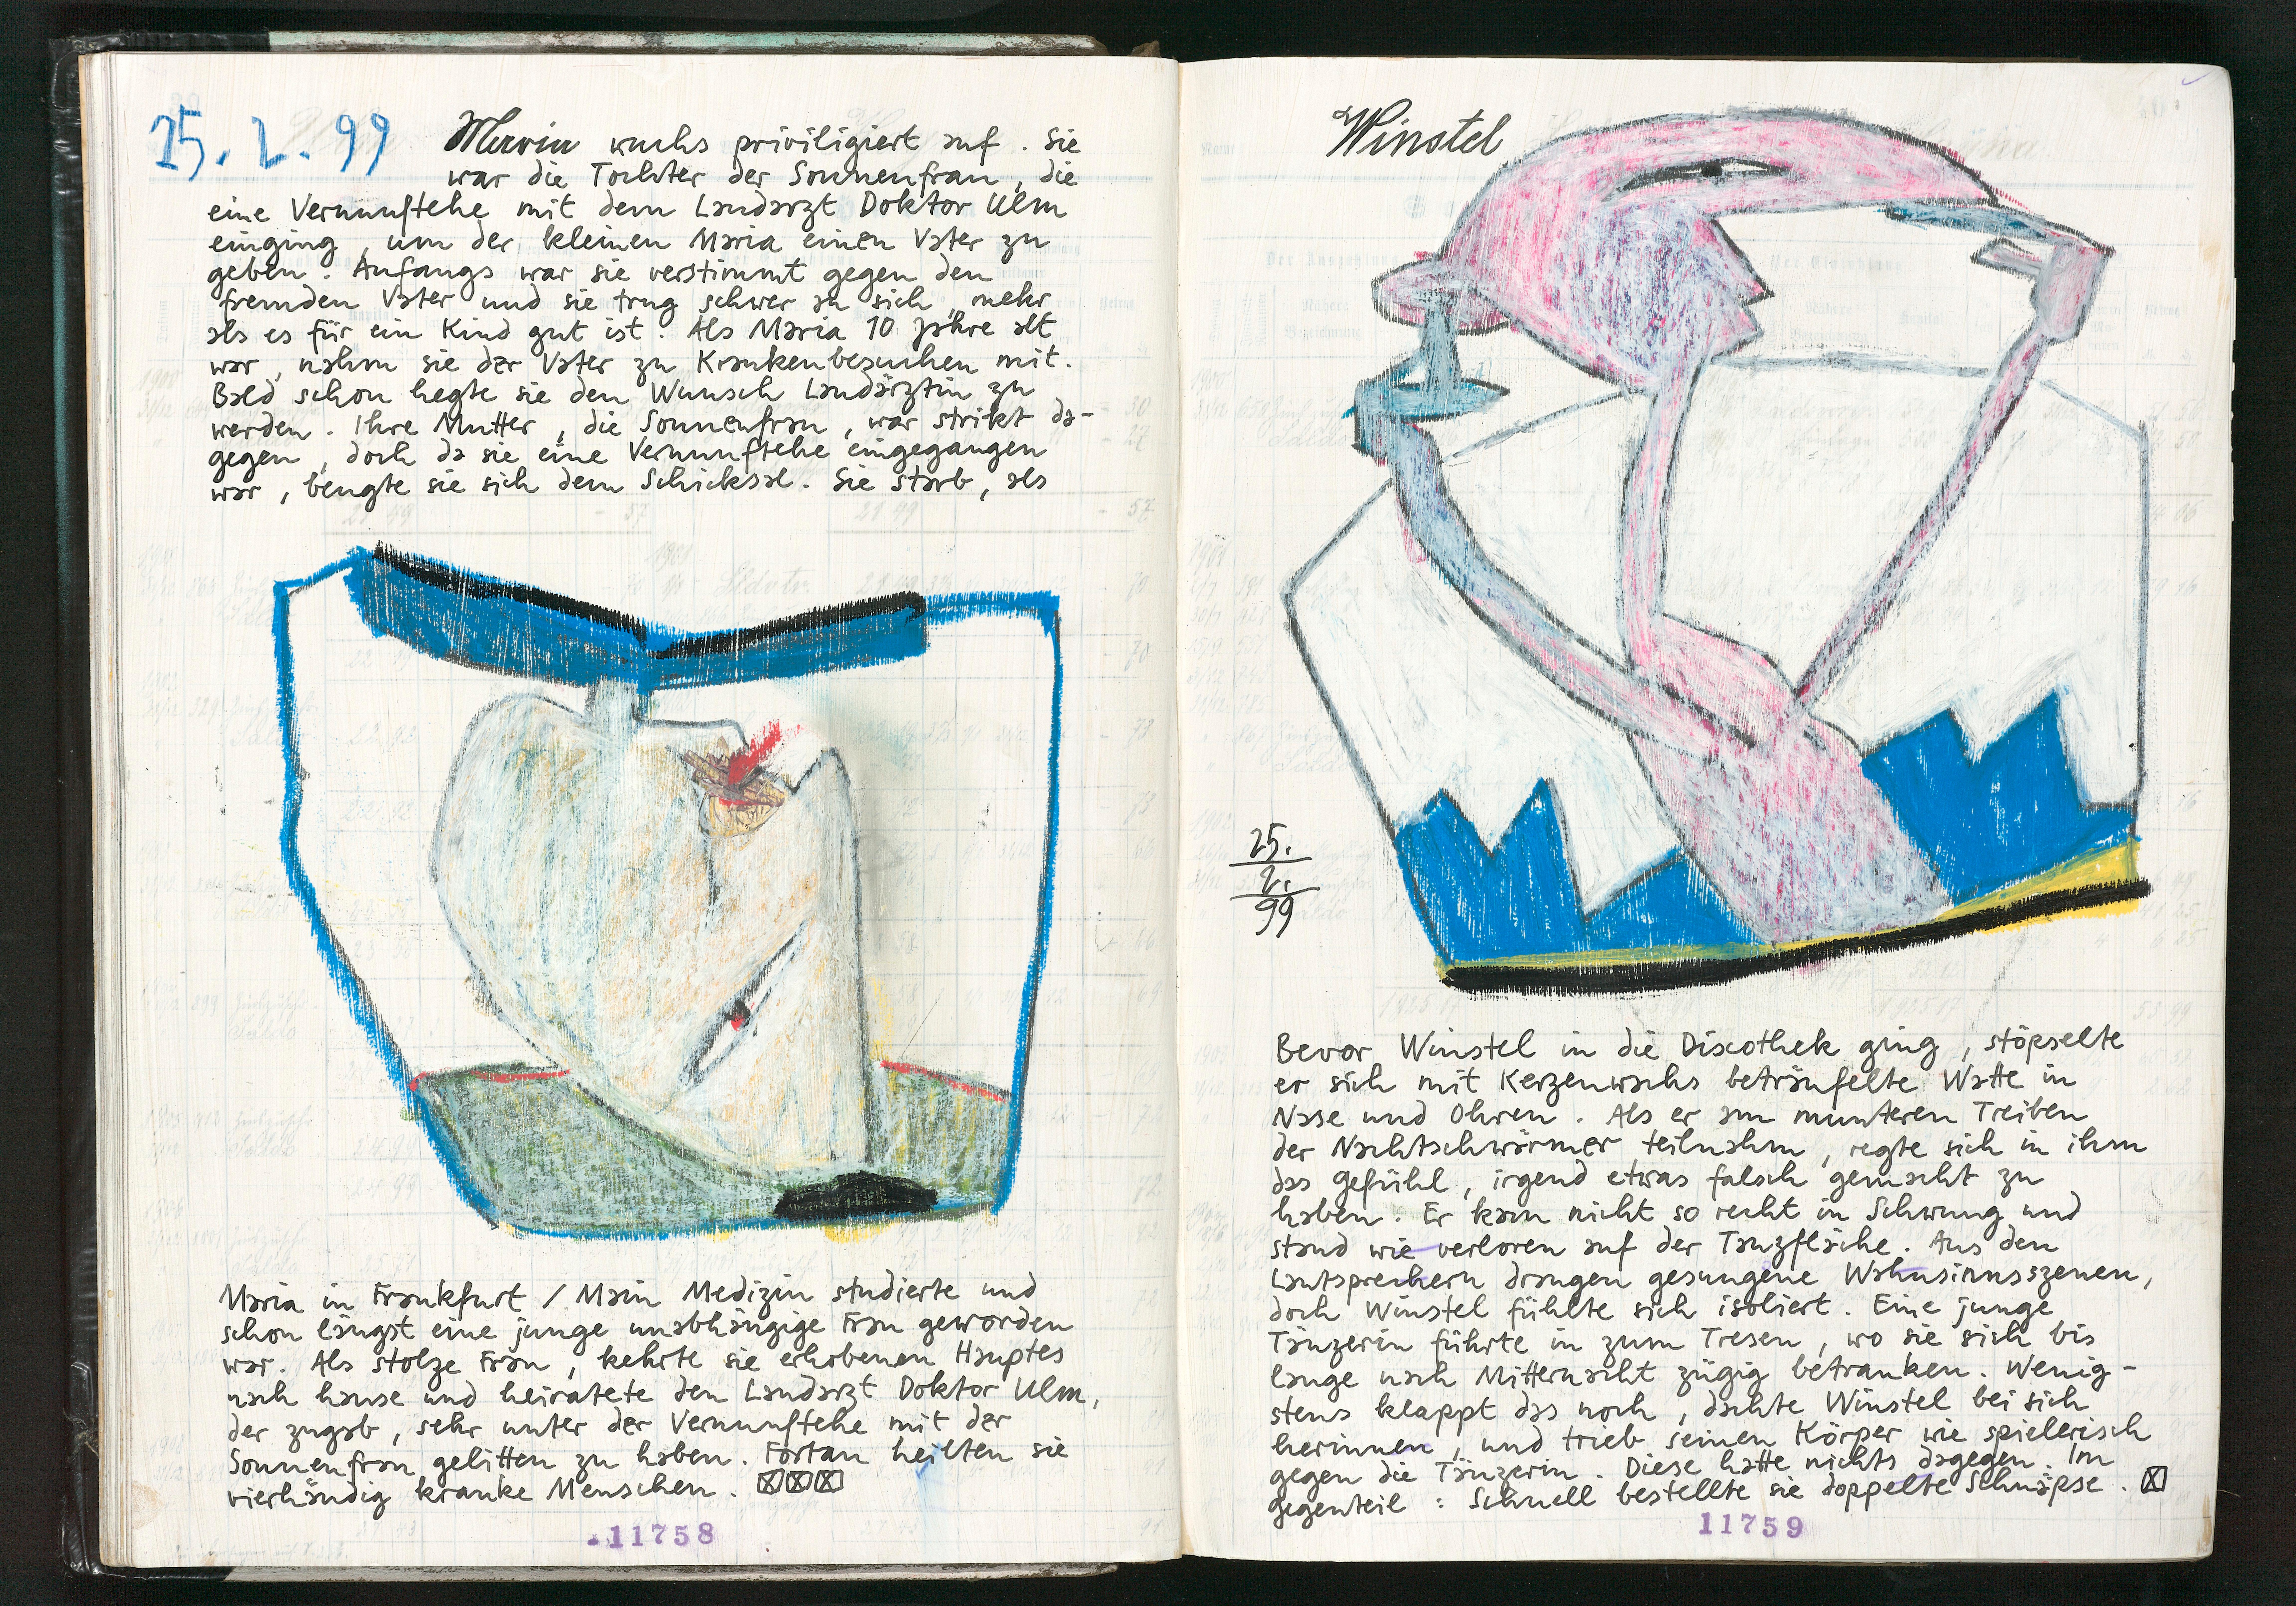 25. 2. 99
Maria wuchs priviligiert auf. Sie
war die Tochter der Sonnenfrau, die
eine Vernunftehe mit dem Landarzt Doktor Ulm
einging, um der kleinen Maria einen Vater zu
geben. Anfangs war sie verstimmt gegen den
fremden Vater und sie trug schwer an sich, mehr
als es für ein Kind gut ist. Als Maria 10 Jahre alt
war, nahm sie der Vater zu Krankenbesuchen mit.
Bald schon hegte sie den Wunsch Landärztin zu
werden. Ihre Mutter, die Sonnenfrau, war strikt da-
gegen, doch da sie eine Vernunftehe eingegangen
war, beugte sie sich dem Schicksal. Sie starb, als
Maria in Frankfurt / Main Medizin studierte und
schon längst eine junge unabhängige Frau geworden
war. Als stolze Frau, kehrte sie erhobenen Hauptes
nach hause und heiratete den Landarzt Doktor Ulm,
der zugab, sehr unter der Vernunftehe mit der
Sonnenfrau gelitten zu haben. Fortan heilten sie
vierhändig kranke Menschen.
11758
Winstel
25.
2.
99
Bevor Winstel in die Discothek ging, stöpselte
er sich mit Kerzenwachs beträufelte Watte in
Nase und Ohren. Als er am munteren Treiben
der Nachtschwärmer teilnahm, regte sich in ihm
das gefühl, irgend etwas falsch gemacht zu
haben. Er kam nicht so recht in Schwung und
stand wie verloren auf der Tanzfläche. Aus den
Lautsprechern drangen gesungene Wahnsinnsszenen,
doch Winstel fühlte sich isoliert. Eine junge
Tänzerin führte in zum Tresen, wo sie sich bis
lange nach Mitternacht zügig betranken. Wenig-
stens klappt das noch, dachte Winstel bei sich
herinnen, und trieb seinen Körper wie spielerisch
gegen die Tänzerin. Diese hatte nichts dagegen. Im
gegenteil: Schnell bestellte sie doppelte Schnäpse.
11759